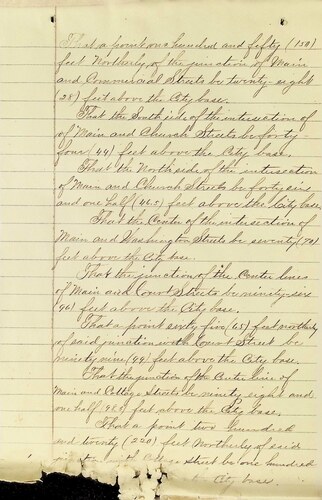 That a point one hundred and fifty (150)
feet Northerly of the junction of Main
and Commercial Streets be twenty-eight
(28) feet above the City base.
That the South side of the intersection of
of Main and Church Streets be forty-
four (44) feet above the City base.
That the North side of the intersection
of Main and Church Streets be forty six
and one half (46.5) feet above the City base.
That the Center of the intersection of
Main and Washington Streets be seventy (70)
feet above the City base.
That the junction of the Center lines
of Main and Court Streets be ninety-six
(96) feet above the City base.
That a point sixty five (65) feet northerly
of said junction with Court Street be
ninety nine (99) feet above the City base.
That the junction of the Center line of
Main and College Streets be ninety eight and
one half (98.5) feet above the City base.
That a point two hundred
and twenty (220) feet Northerly of said
with College Street be one hundred
City base.